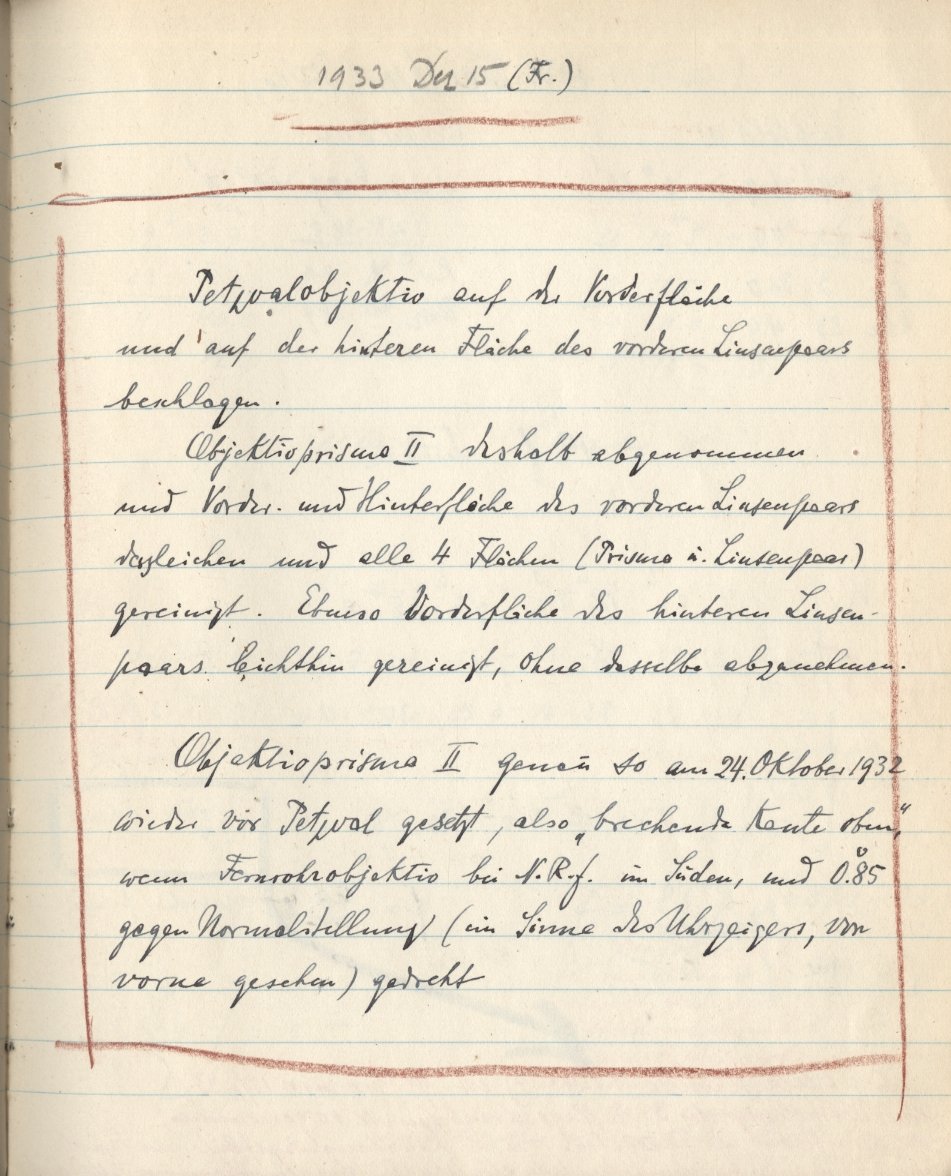 1933 Dez 15 (Fr.)
Petzvalobjektiv auf der Vorderfläche
und auf der hinteren Fläche des vorderen Linsenpaars
beschlagen.
Objektivprisma II deshalb abgenommen
und Vorder- und Hinterfläche des vorderen Linsenpaars
desgleichen und alle 4 Flächen (Prisma u. Linsenpaar)
gereinigt. Ebenso Vorderfläche des hinteren Linsen-
paars leichthin gereinigt, ohne dasselbe abzunehmen.
Objektivprisma II genau so am 24. Oktober 1932
wieder vor Petzval gesetzt, also „brechende Kante oben“
wenn Fernrohrobjektiv bei N.R.f. im Süden, und 0.°85
gegen Normalstellung (im Sinne des Uhrzeigers, von
vorne gesehen) gedreht